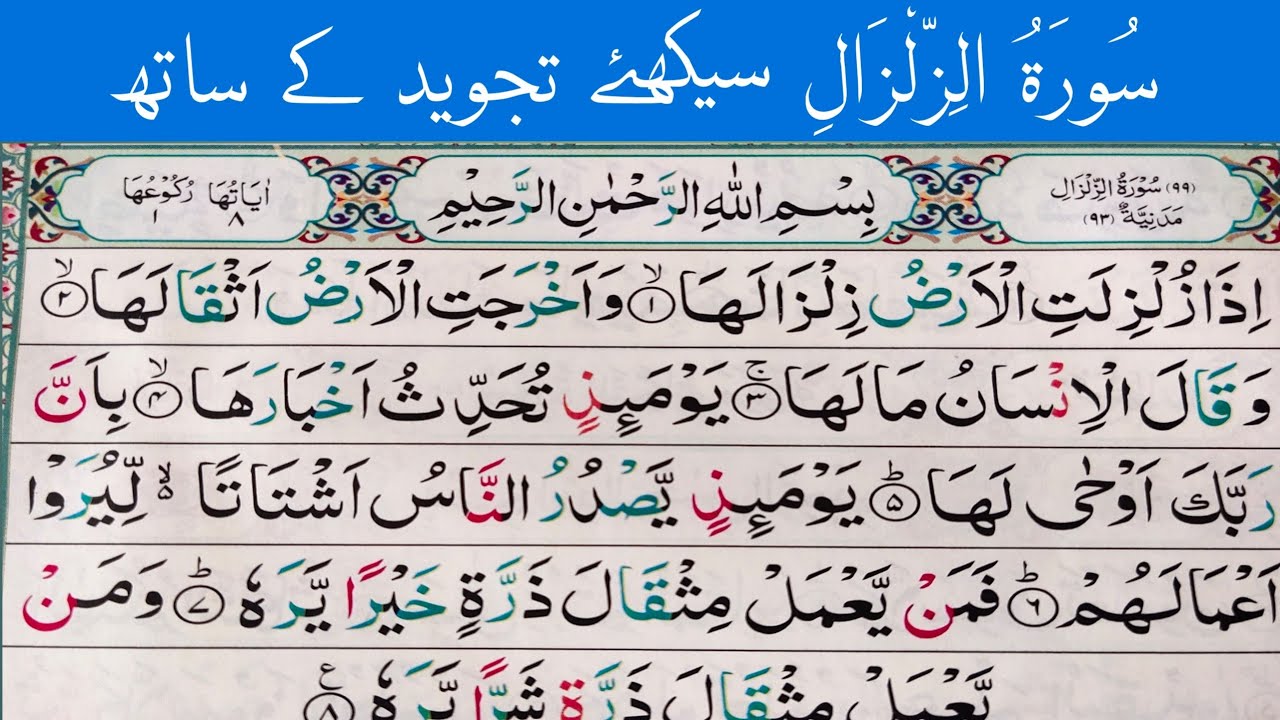 سُورَةُ الِزِّلْزَالِ سیکھئے تجوید کے ساتھ
(٩٩) سُوْرَةُ الزِّلْزَالِ مَدَنِيَّةٌ (٩٣)
بِسْمِ اللّٰهِ الرَّحْمٰنِ الرَّحِيْمِ
اٰيَاتُهَا ٨ رُكُوْعُهَا ١
اِذَا زُلْزِلَتِ الْاَرْضُ زِلْزَالَهَا ۙ﴿١﴾ وَاَخْرَجَتِ الْاَرْضُ اَثْقَالَهَا ۙ﴿٢﴾
وَقَالَ الْاِنْسَانُ مَا لَهَا ۚ﴿٣﴾ يَوْمَئِذٍ تُحَدِّثُ اَخْبَارَهَا ۙ﴿٤﴾ بِاَنَّ
رَبَّكَ اَوْحٰى لَهَا ؕ﴿٥﴾ يَوْمَئِذٍ يَّصْدُرُ النَّاسُ اَشْتَاتًا ۙ۵ لِّيُرَوْا
اَعْمَالَهُمْ ؕ﴿٦﴾ فَمَنْ يَّعْمَلْ مِثْقَالَ ذَرَّةٍ خَيْرًا يَّرَهٗ ؕ﴿٧﴾ وَمَنْ
يَّعْمَلْ مِثْقَالَ ذَرَّةٍ شَرًّا يَّرَهٗ ﴿٨﴾ ع